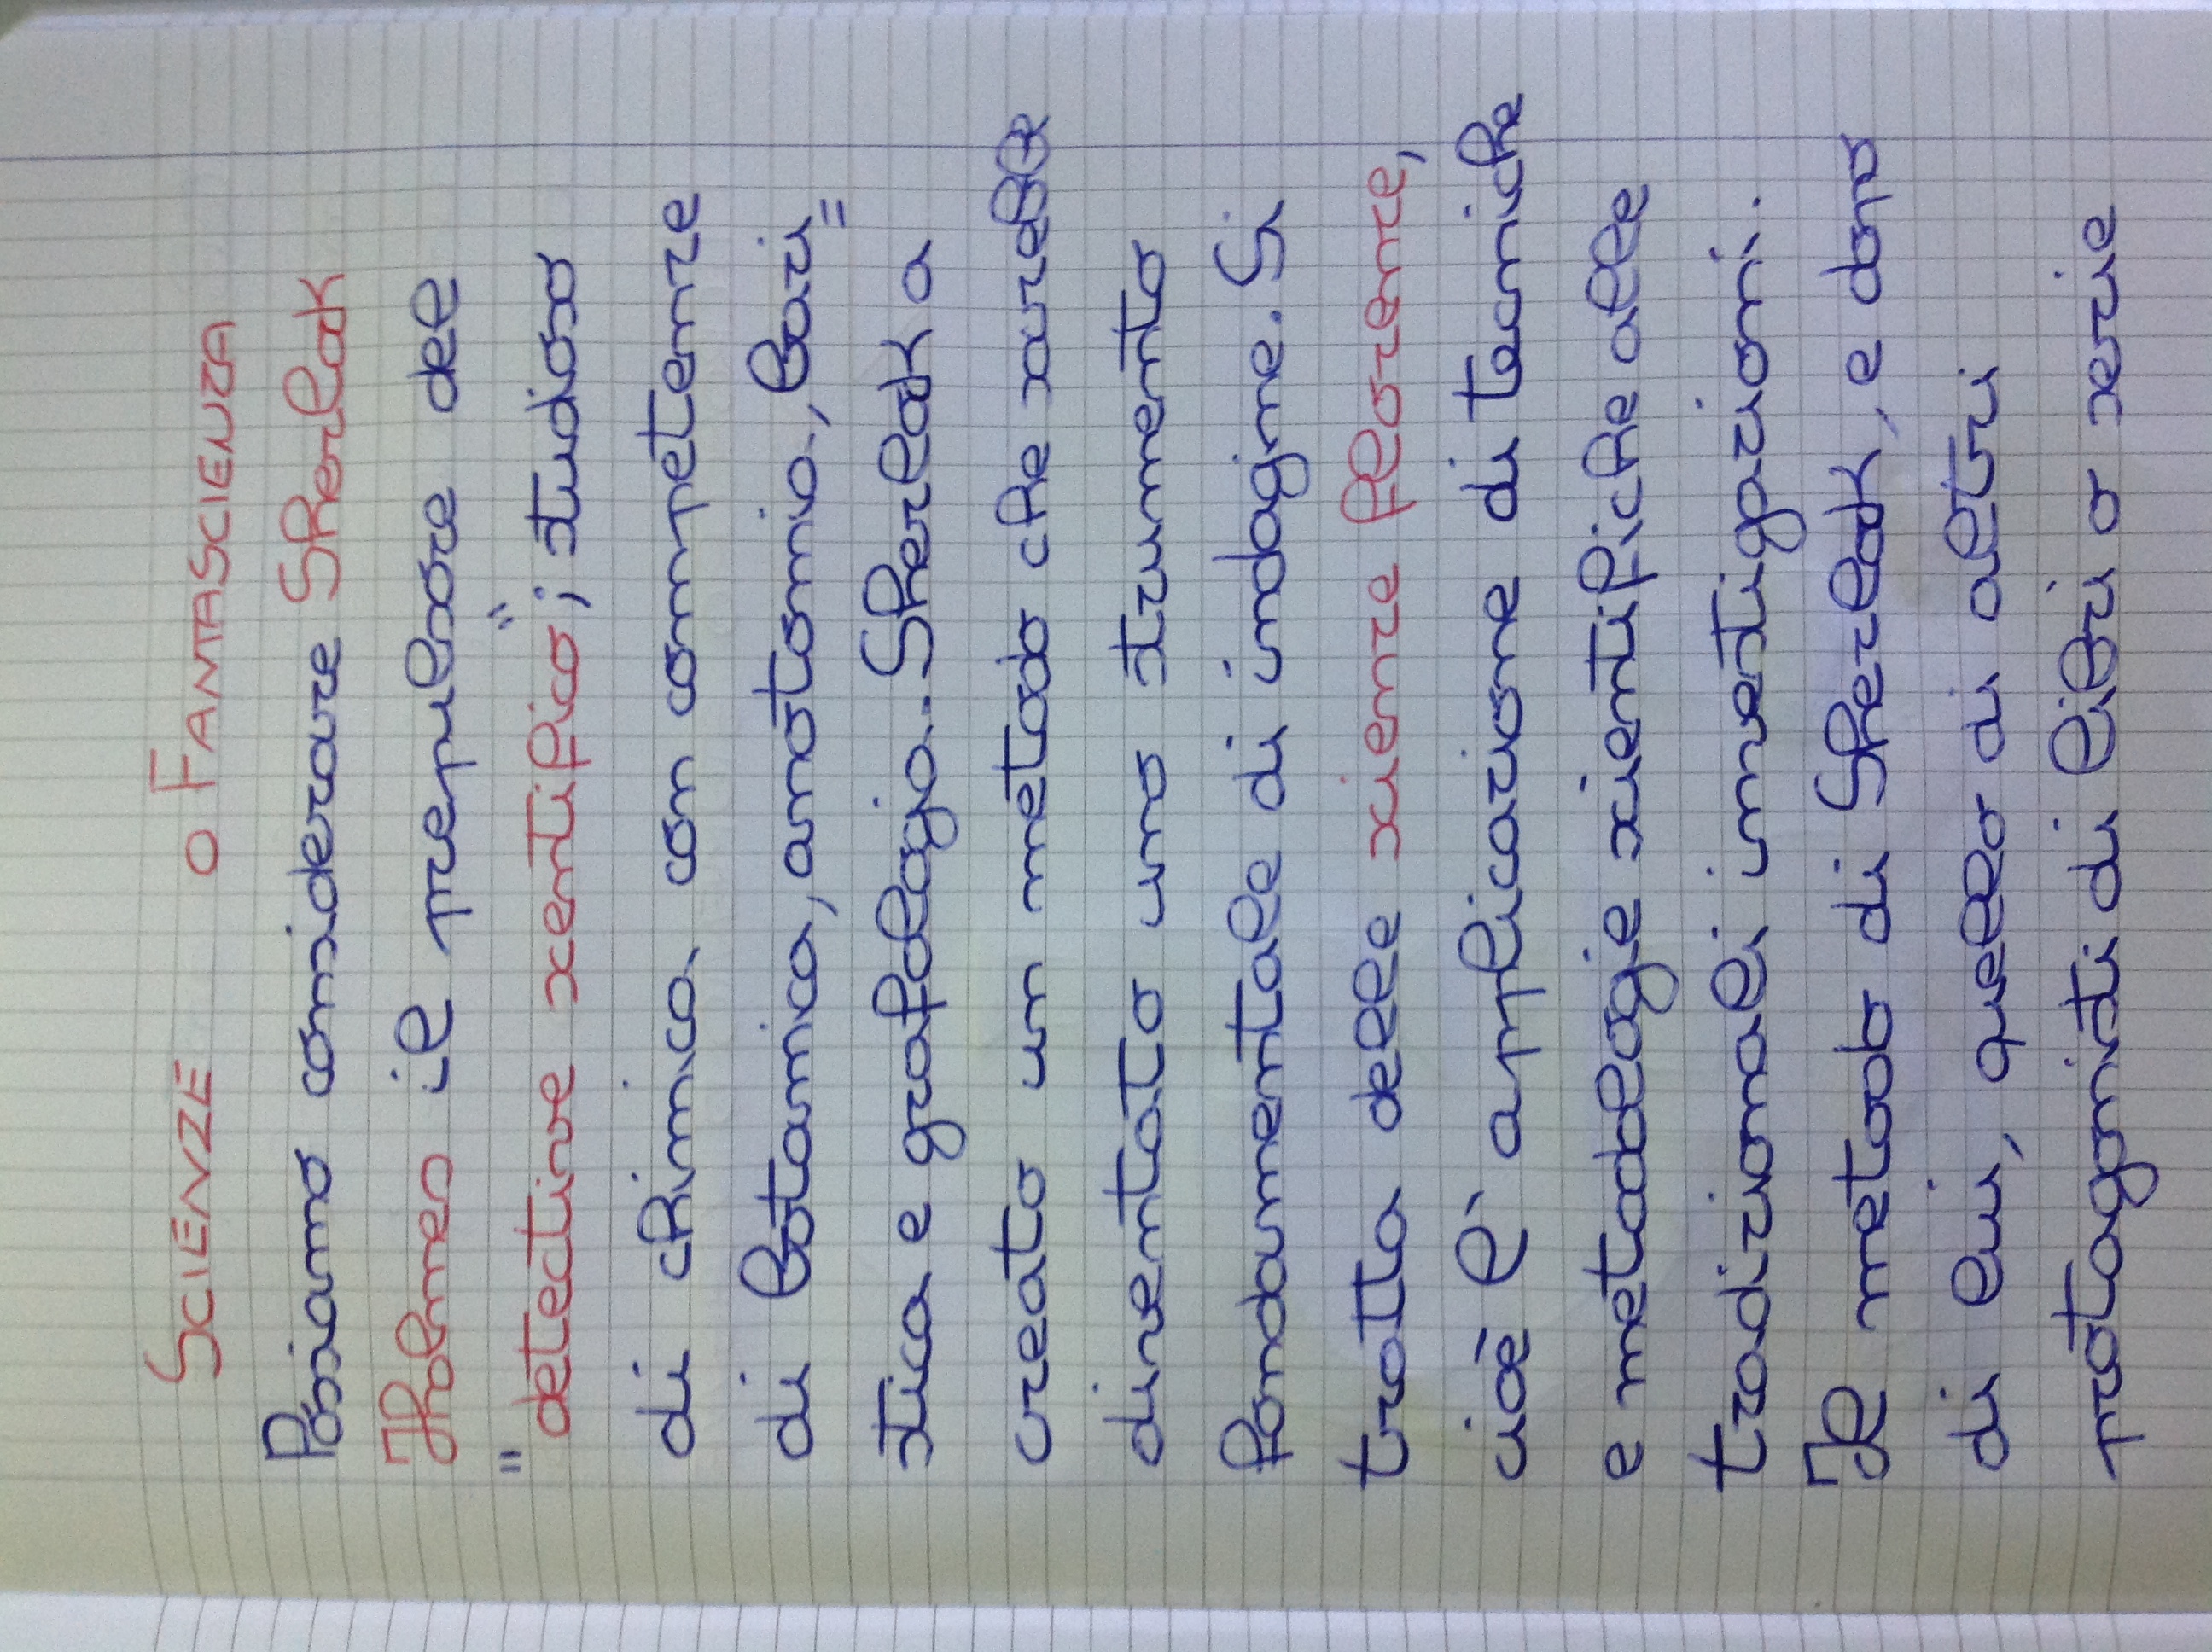 SCIENZE O FANTASCIENZA
Possiamo considerare Sherlok
Holmes il precursore del
"detective scentifico"; studioso
di chimica con competenze
di botanica, anatomia, bari=
stica e grafologia. Sherlok a
creato un metodo che sarebbe
diventato uno strumento
fondamentale di indagine. Si
tratta delle scienze florence,
cioè l'applicazione di tecniche
e metodologie scientifiche alle
tradizionali investigazioni.
Il metodo di Sherlok, e dopo
di lui, quello di altri
protagonisti di libri o serie